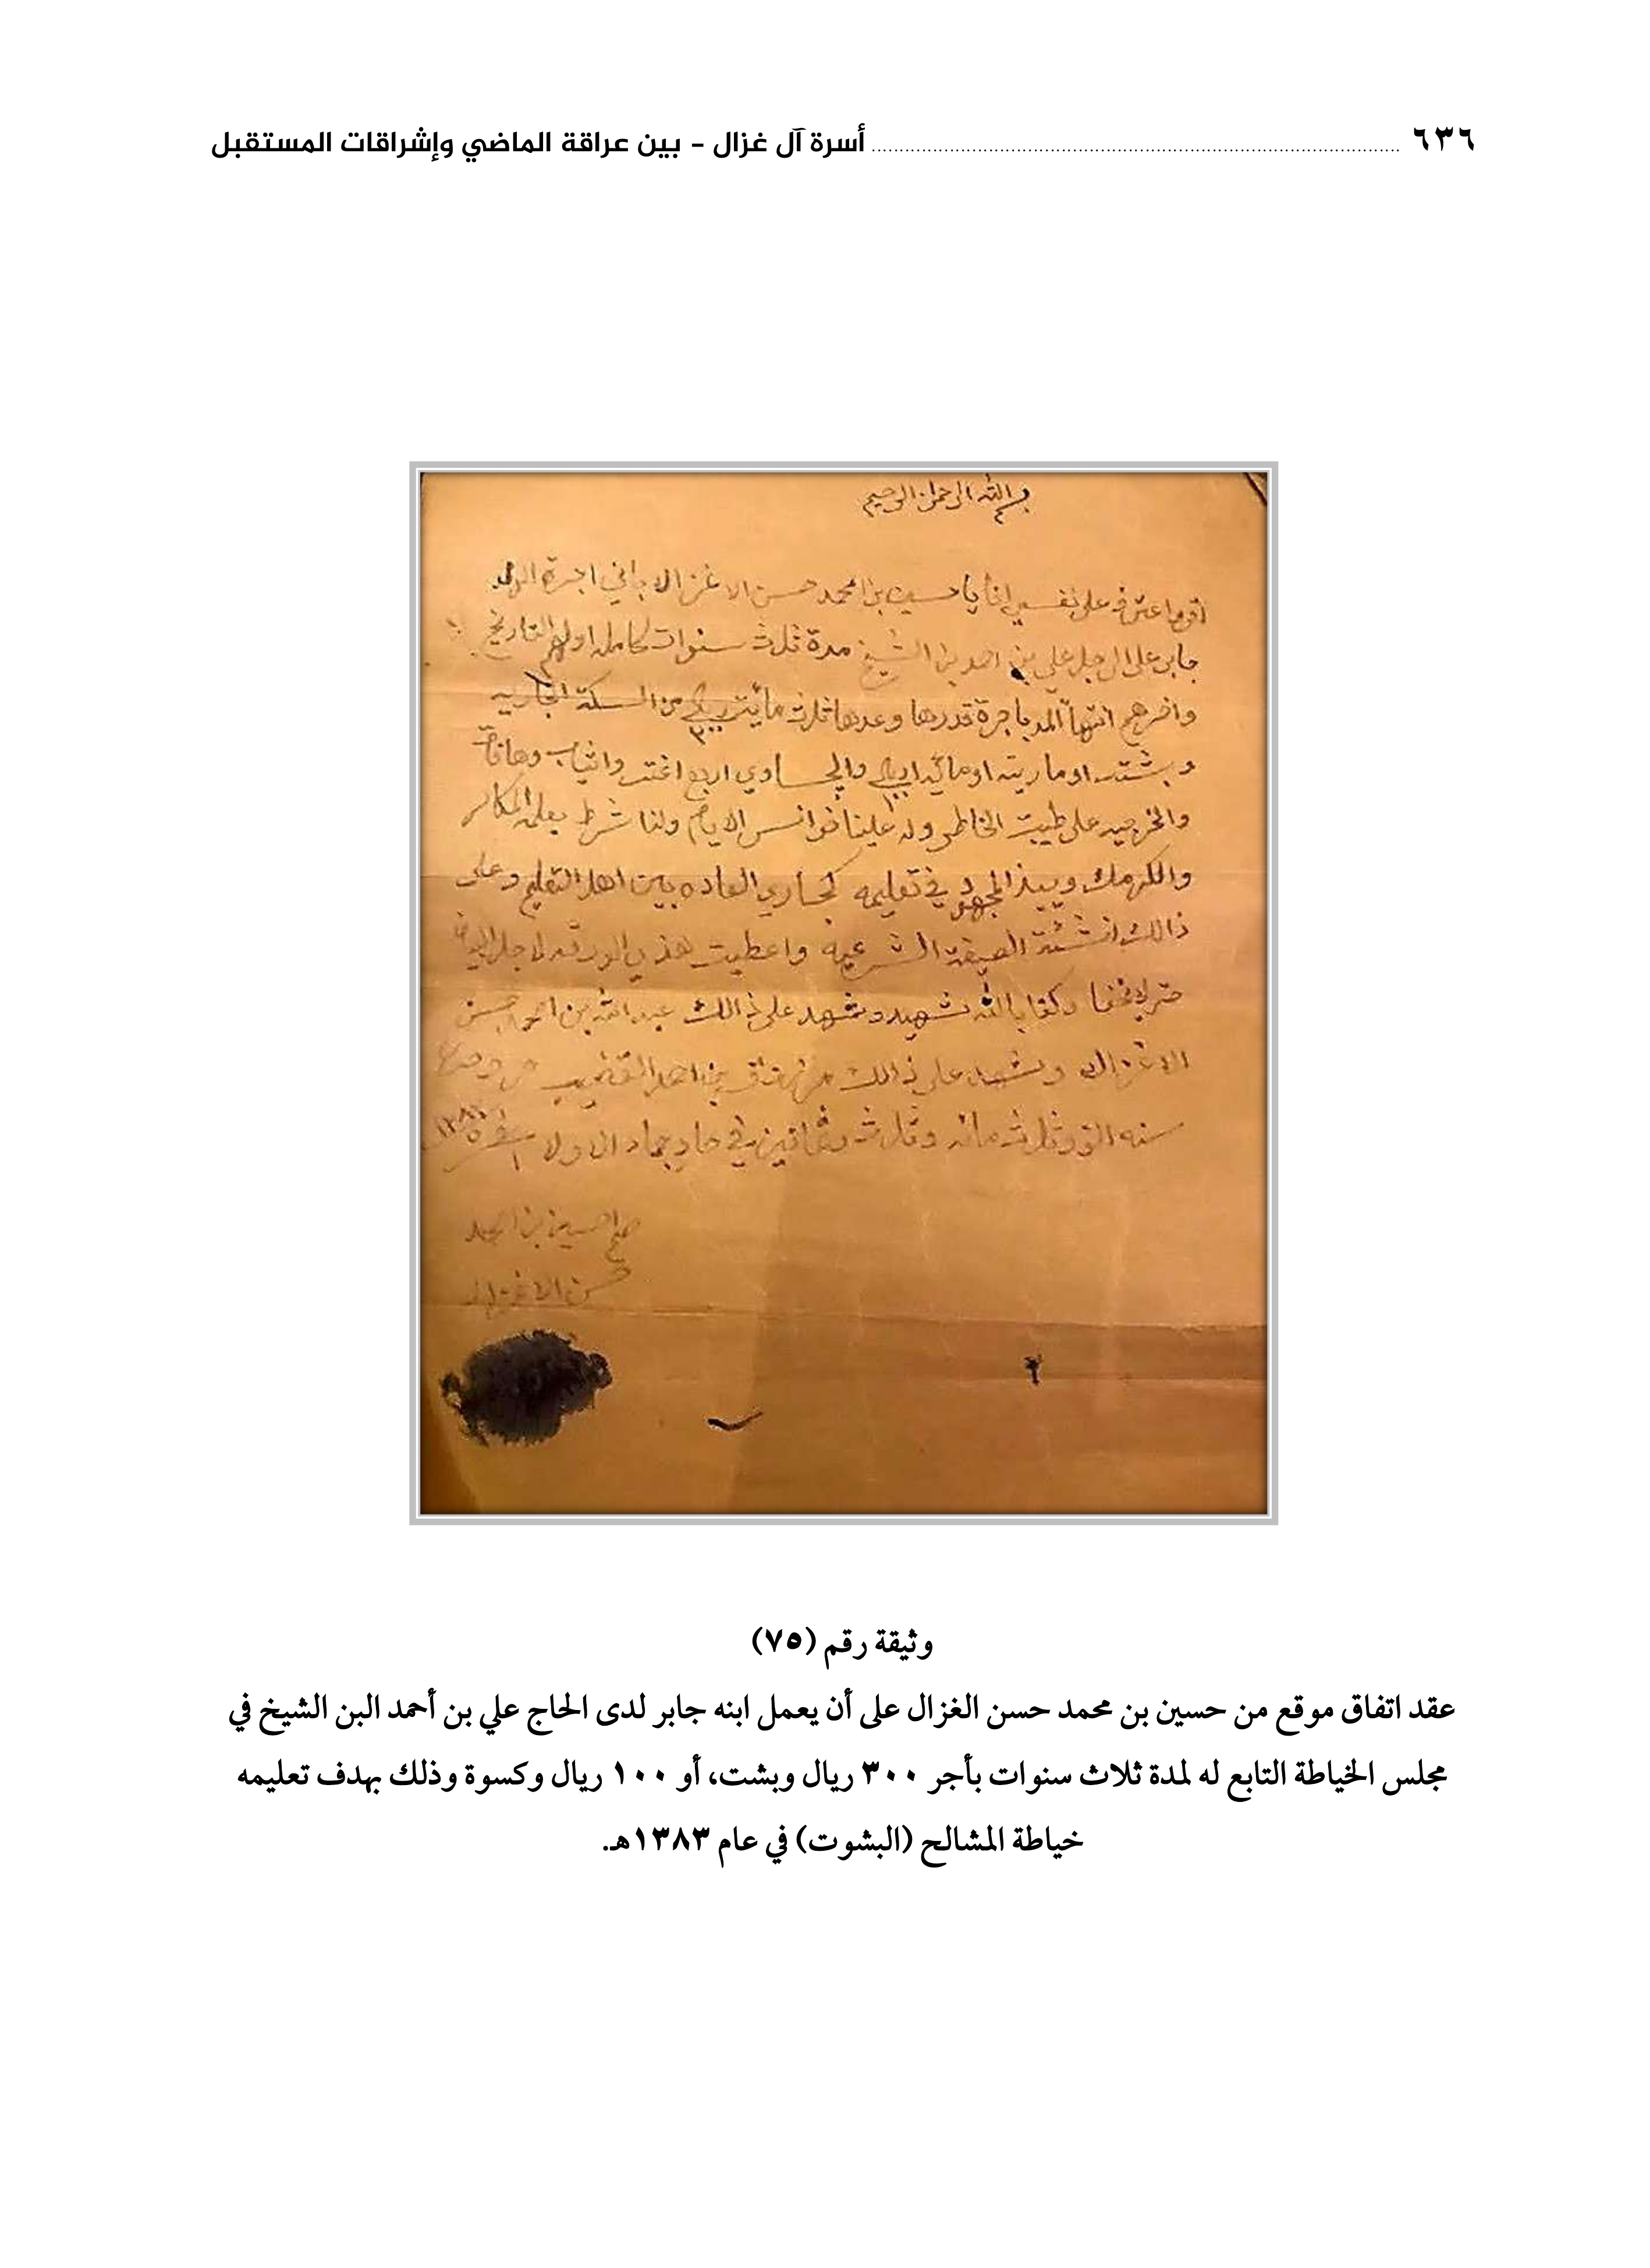 ٦٣٦ أسرة آل غزال – بين عراقة الماضي وإشراقات المستقبل
بسم الله الرحمن الرحيم
على نفسي انا يا حسين بن محمد حسن الاغزال باني اجرة الولد
جابر على الرجل علي بن احمد بن الشيخ مدة ثلاث سنوات كامله اولهم التاريخ
واخرهم انتهاً المد باجرة قدرها وعدها ثلاث مأية ريال ٣٠٠ من السكة الجاريه
وبشت او مأية ريال ١٠٠ اربع
والخرجيه على طيبت الخاطر وله علينا الايام ولنا شرط يعلمه المكاسر
والكرمك ويبذ المجهود في تعليمه كجاري العاده بين اهل التعليم وعلى
ذالك الصيغة الشرعيه واعطيت هذي الورقه لاجل
حتى لا يخفا وكفا بالله شهيد وشهد على ذالك عبد الله بن احمد حسن
الاغزال ويشهد على ذالك بن احمد القضيب
سنه الف وثلاث مائه وثلاث وثمانين في جماد الاولا ١٣٨٣
صح احسين بن امحمد
حسن الاغزال
وثيقة رقم (٧٥)
عقد اتفاق موقع من حسين بن محمد حسن الغزال على أن يعمل ابنه جابر لدى الحاج علي بن أحمد البن الشيخ في
مجلس الخياطة التابع له لمدة ثلاث سنوات بأجر ٣٠٠ ريال وبشت، أو ١٠٠ ريال وكسوة وذلك بهدف تعليمه
خياطة المشالح (البشوت) في عام ١٣٨٣هـ.